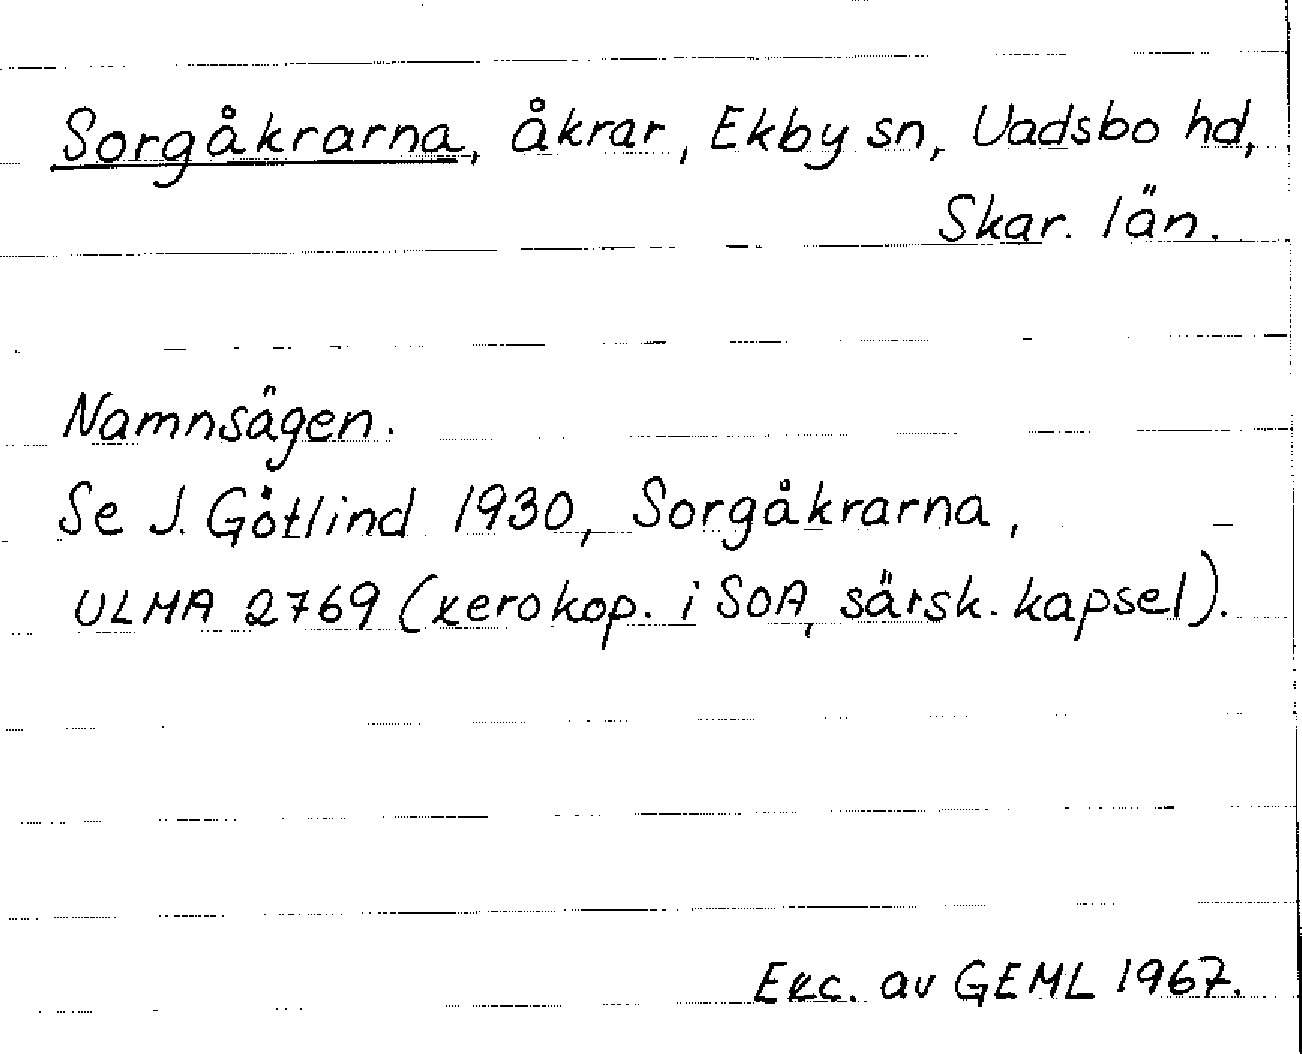 Sorgåkrarna, åkrar, Ekby sn, Vadsbo hd,
Skar. län.
Namnsägen.
Se J. Götlind 1930, Sorgåkrarna,
ULMA 2769 (xerokop. i SOA, särsk. kapsel).
Exc. av GEML 1967.